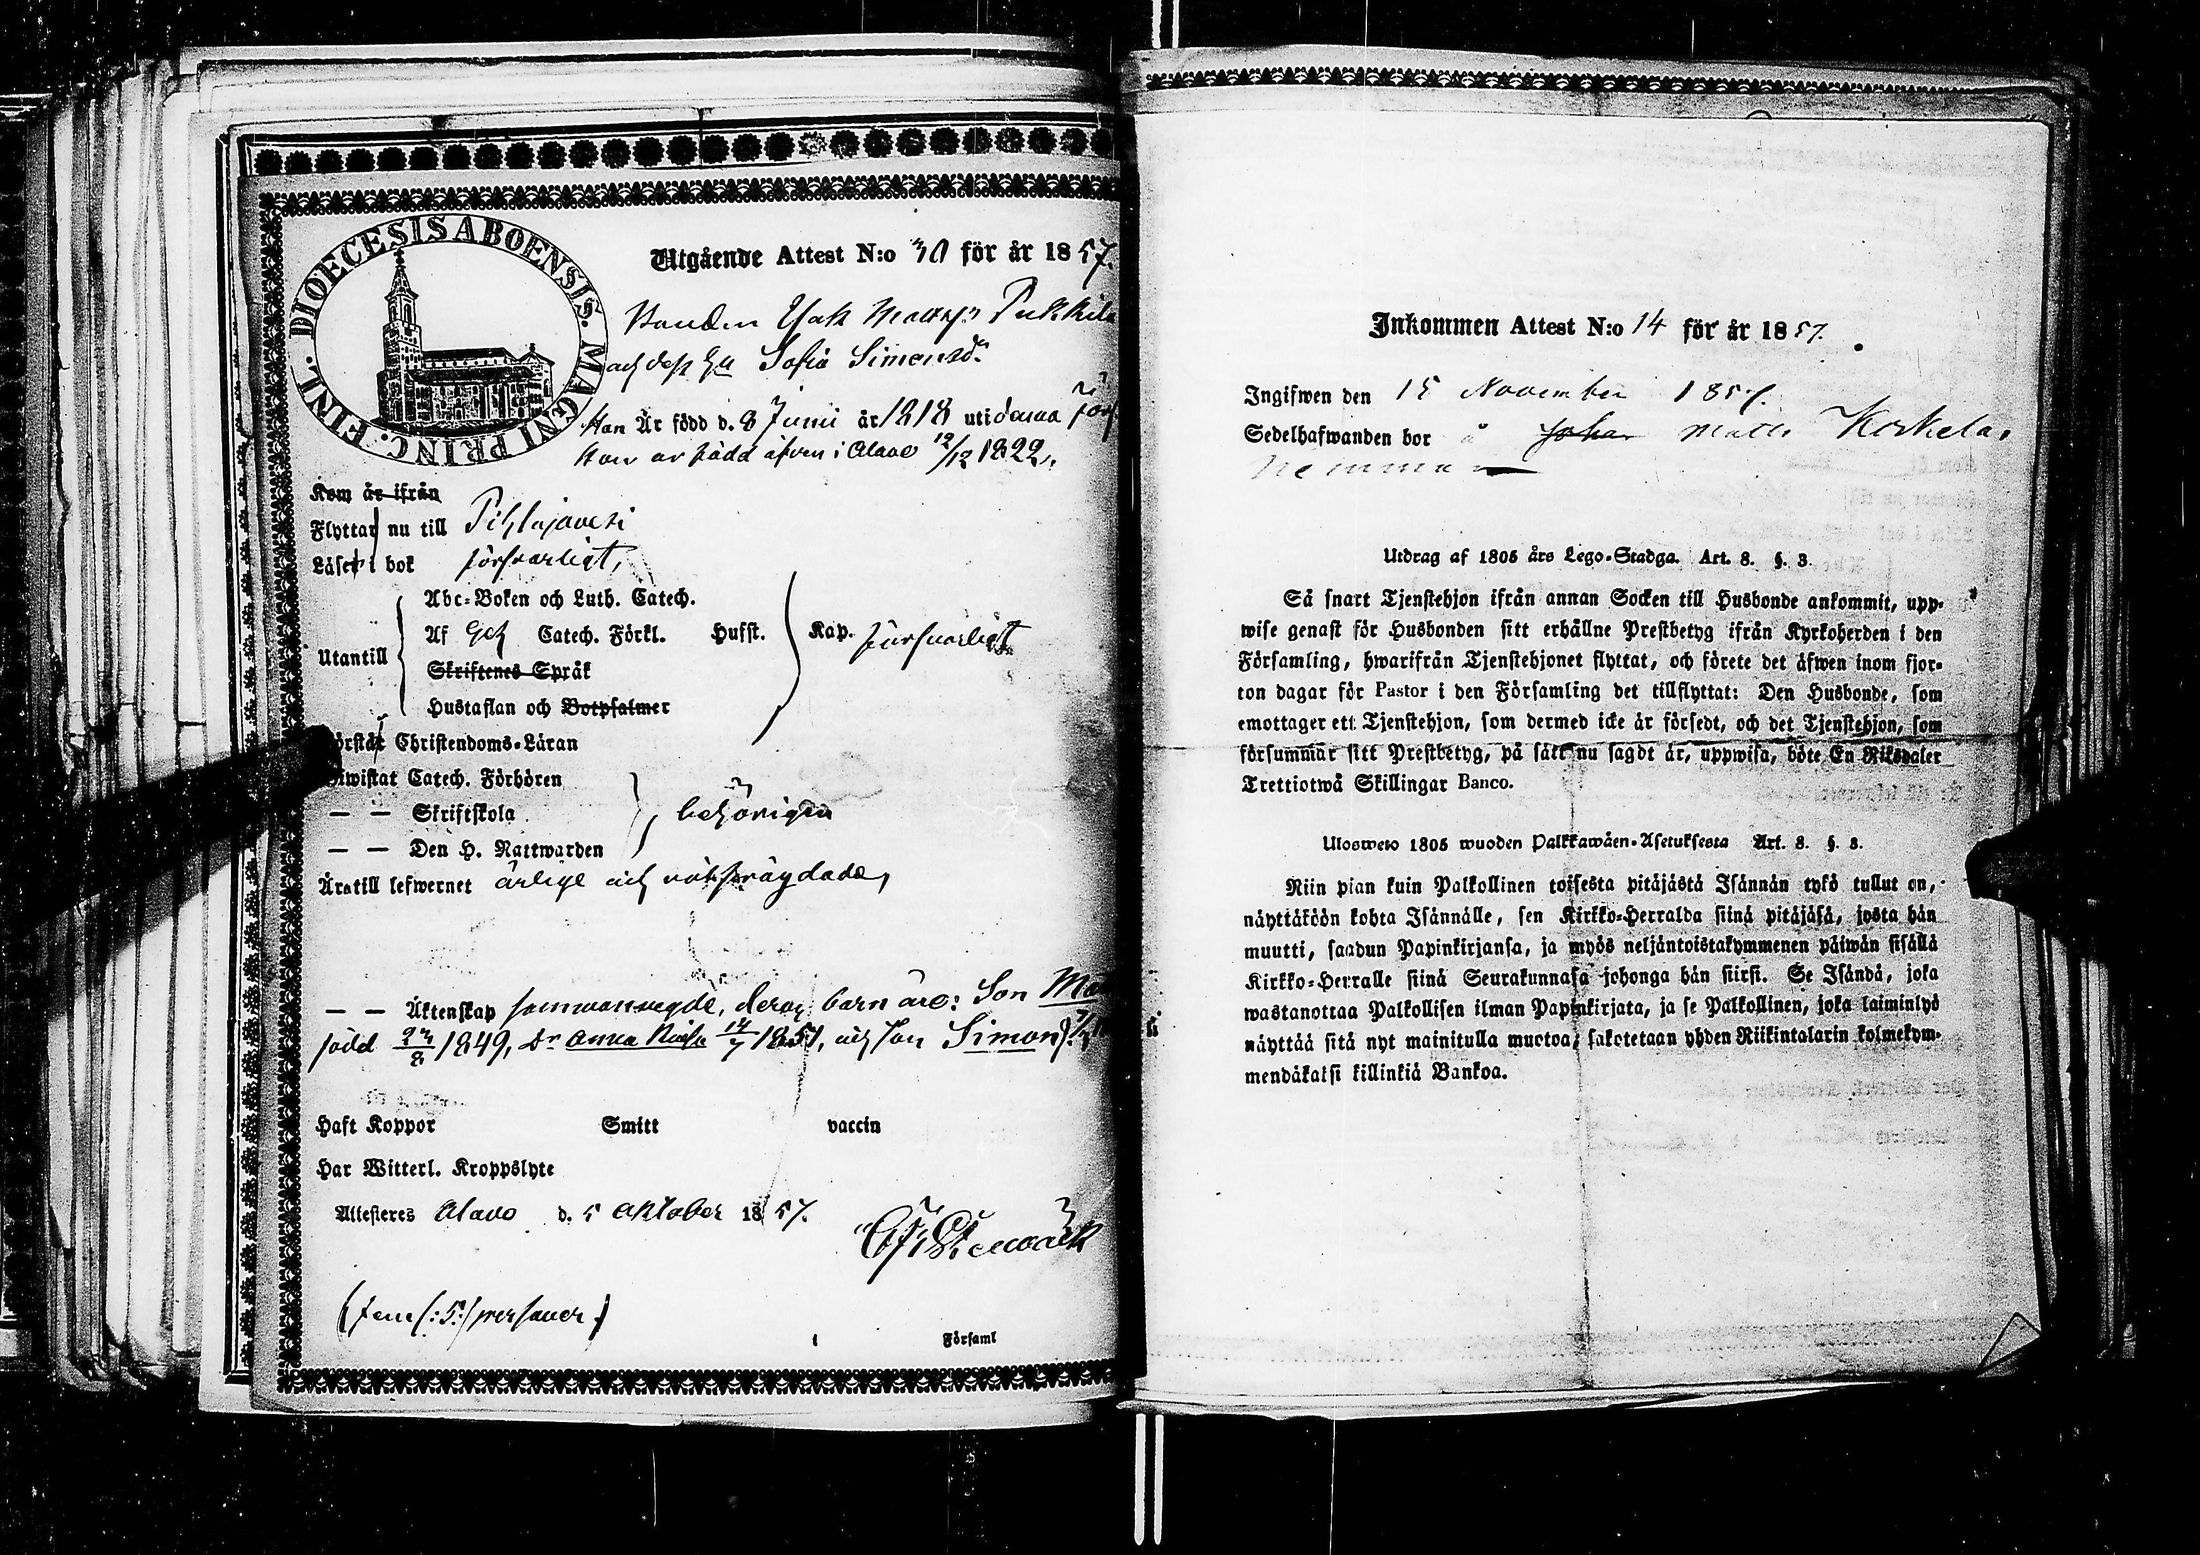 DIOECESIS ABOENSIS. MAGNI PRINC. FINL.
Utgående Attest N:o 30 för år 1857.
Bonden Isak Mattss:n Pukkila
och dess Hu Sofia Simonsd:r
Han Är född d. 8 Junii år 1818 uti denna för
Hon är född äfven i Alavo 12/12 1822.
Kom är ifrån
Flyttar nu till Pihlajavesi
Läser i bok försvarligt,
Utantill
Abc-Boken och Luth. Catech.
Af och Catech. Förkl. Husst. Kap. försvarligt
Skriftenes Språk
Hustaflan och Botpsalmer
Förstår Christendoms-Läran
Biwistat Catech. Förhören
— — Skriftskola behörigen
— — Den H. Nattwarden
Äro till lefwernet ärlige och
— — Äktenskap sammanvigde, deras barn äro: Son
född 23/8 1849, Dr Anna 14/7 1851, och Son Simon f.
Haft Koppor Smitt vaccin
Har Witterl. Kroppslyte
Attesteres Alavo d. 5 Oktober 1857.
(Fem /:5:/ personer)
i Församl
Inkommen Attest N:o 14 för år 1857.
Ingifwen den 15 November 1857.
Sedelhafwanden bor å Johan Matts Korkela
hemman
Utdrag af 1805 års Lego-Stadga. Art. 8. §. 3.
Så snart Tjenstehjon ifrån annan Socken till Husbonde ankommit, upp-
wise genast för Husbonden sitt erhållne Prestbetyg ifrån Kyrkoherden i den
Församling, hwarifrån Tjenstehjonet flyttat, och förete det äfwen inom fjor-
ton dagar för Pastor i den Församling det tillflyttat: Den Husbonde, som
emottager ett Tjenstehjon, som dermed icke är försedt, och det Tjenstehjon, som
försummar sitt Prestbetyg, på sätt nu sagdt är, uppwisa, böte En Riksdaler
Trettiotwå Skillingar Banco.
Ulosweto 1805 wuoden Palkkawäen-Asetuksesta Art. 8. §. 3.
Niin pian kuin Palkollinen toisesta pitäjästä Isännän tykö tullut on,
näyttäköön kohta Isännälle, sen Kirkko-Herralda siinä pitäjäsä, josta hän
muutti, saadun Papinkirjansa, ja myös neljäntoistakymmenen päiwän sisällä
Kirkko-Herralle siinä Seurakunnasa johonga hän siirsi. Se Isändä, joka
wastanottaa Palkollisen ilman Papinkirjata, ja se Palkollinen, joka laiminlyö
näyttää sitä nyt mainitulla muotoa, sakotetaan yhden Riikintalarin kolmekym-
mendäkaksi killinkiä Bankoa.